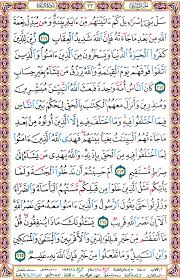 سَلْ بَنِىٓ إِسْرَٰٓءِيلَ كَمْ ءَاتَيْنَٰهُم مِّنْ ءَايَةٍۭ بَيِّنَةٍ ۗ وَمَن يُبَدِّلْ نِعْمَةَ
ٱللَّهِ مِنۢ بَعْدِ مَا جَآءَتْهُ فَإِنَّ ٱللَّهَ شَدِيدُ ٱلْعِقَابِ ٢١١ زُيِّنَ لِلَّذِينَ
كَفَرُوا۟ ٱلْحَيَوٰةُ ٱلدُّنْيَا وَيَسْخَرُونَ مِنَ ٱلَّذِينَ ءَامَنُوا۟ ۘ وَٱلَّذِينَ
ٱتَّقَوْا۟ فَوْقَهُمْ يَوْمَ ٱلْقِيَٰمَةِ ۗ وَٱللَّهُ يَرْزُقُ مَن يَشَآءُ بِغَيْرِ حِسَابٍ
٢١٢ كَانَ ٱلنَّاسُ أُمَّةً وَٰحِدَةً فَبَعَثَ ٱللَّهُ ٱلنَّبِيِّۦنَ مُبَشِّرِينَ
وَمُنذِرِينَ وَأَنزَلَ مَعَهُمُ ٱلْكِتَٰبَ بِٱلْحَقِّ لِيَحْكُمَ بَيْنَ ٱلنَّاسِ
فِيمَا ٱخْتَلَفُوا۟ فِيهِ ۚ وَمَا ٱخْتَلَفَ فِيهِ إِلَّا ٱلَّذِينَ أُوتُوهُ مِنۢ بَعْدِ
مَا جَآءَتْهُمُ ٱلْبَيِّنَٰتُ بَغْيًۢا بَيْنَهُمْ ۖ فَهَدَى ٱللَّهُ ٱلَّذِينَ ءَامَنُوا۟
لِمَا ٱخْتَلَفُوا۟ فِيهِ مِنَ ٱلْحَقِّ بِإِذْنِهِۦ ۗ وَٱللَّهُ يَهْدِى مَن يَشَآءُ إِلَىٰ
صِرَٰطٍ مُّسْتَقِيمٍ ٢١٣ أَمْ حَسِبْتُمْ أَن تَدْخُلُوا۟ ٱلْجَنَّةَ وَلَمَّا يَأْتِكُم
مَّثَلُ ٱلَّذِينَ خَلَوْا۟ مِن قَبْلِكُم ۖ مَّسَّتْهُمُ ٱلْبَأْسَآءُ وَٱلضَّرَّآءُ
وَزُلْزِلُوا۟ حَتَّىٰ يَقُولَ ٱلرَّسُولُ وَٱلَّذِينَ ءَامَنُوا۟ مَعَهُۥ مَتَىٰ نَصْرُ ٱللَّهِ ۗ
أَلَآ إِنَّ نَصْرَ ٱللَّهِ قَرِيبٌ ٢١٤ يَسْـَٔلُونَكَ مَاذَا يُنفِقُونَ ۖ قُلْ
مَآ أَنفَقْتُم مِّنْ خَيْرٍ فَلِلْوَٰلِدَيْنِ وَٱلْأَقْرَبِينَ وَٱلْيَتَٰمَىٰ وَٱلْمَسَٰكِينِ
وَٱبْنِ ٱلسَّبِيلِ ۗ وَمَا تَفْعَلُوا۟ مِنْ خَيْرٍ فَإِنَّ ٱللَّهَ بِهِۦ عَلِيمٌ ٢١٥